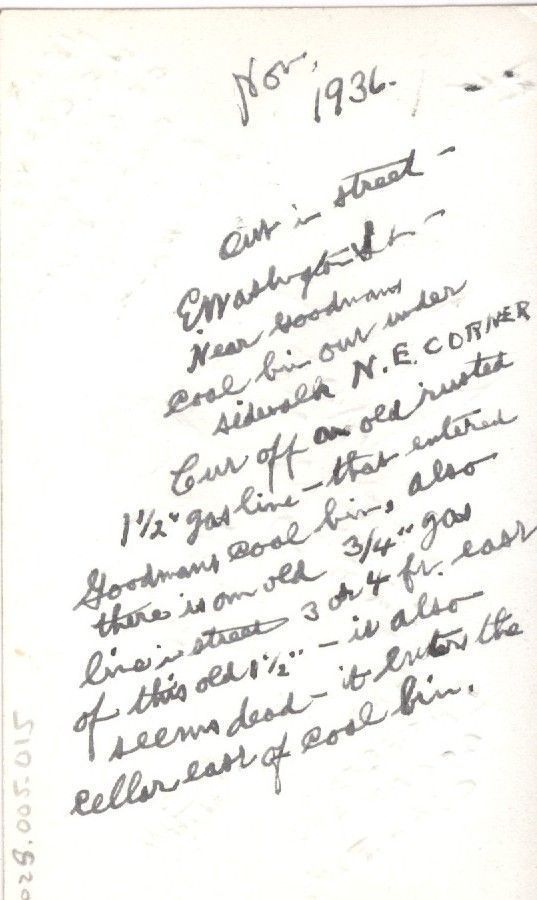 Nov,
1936.
Cut in street -
E Washington St -
Near Goodmans
coal bin out under
sidewalk N.E. CORNER
Cut off an old rusted
1 1/2" gas line - that entered
Goodmans coal bin, also
there is an old 3/4" gas
line in street 3 or 4 ft. east
of this old 1 1/2" - it also
seems dead - it enters the
cellar east of coal bin.
028.005.015